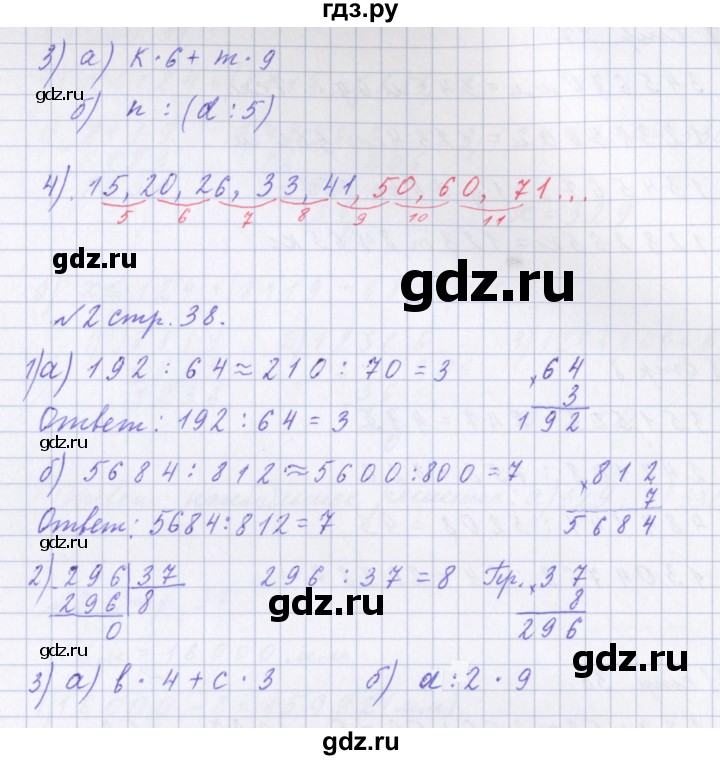 гдз.ру
3) а) к · 6 + m · 9
gdz.ru
б) n : (d : 5)
4). 15, 20, 26, 33, 41, 50, 60, 71...
5 6 7 8 9 10 11
gdz.ru
gdz.ru
№2 стр. 38.
1) а) 192 : 64 ≈ 210 : 70 = 3
× 64
3
192
Ответ: 192 : 64 = 3
gdz.ru
б) 5684 : 812 ≈ 5600 : 800 = 7
× 812
7
5684
gdz.ru
Ответ: 5684 : 812 = 7
gdz.ru
2) 296 | 37
296 | 8
0
296 : 37 = 8 Пр. × 37
8
296
gdz.ru
gdz.ru
gdz.ru
3) а) b · 4 + c · 3 б) d : 2 · 9
gdz.ru